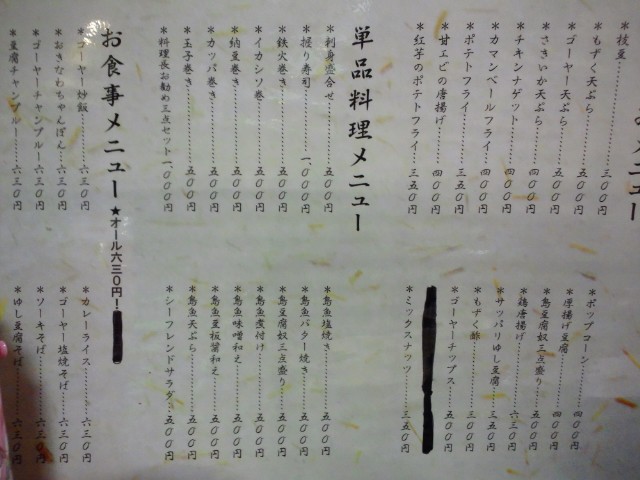 メニュー
＊枝豆………三〇〇円
＊もずく天ぷら………五〇〇円
＊ゴーヤー天ぷら……五〇〇円
＊さきいか天ぷら……四〇〇円
＊チキンナゲット……四〇〇円
＊カマンベールフライ…四〇〇円
＊ポテトフライ………三五〇円
＊甘エビの唐揚げ……四〇〇円
＊紅芋のポテトフライ…三五〇円
＊ポップコーン………四〇〇円
＊厚揚げ豆腐………四〇〇円
＊島豆腐奴三点盛り…五〇〇円
＊鶏唐揚げ………六三〇円
＊サッパリゆし豆腐…三五〇円
＊もずく酢………四〇〇円
＊ゴーヤーチップス…五〇〇円
＊ミックスナッツ……三五〇円
単品料理メニュー
＊刺身盛合せ………五〇〇円
＊握り寿司………一、〇〇〇円
＊鉄火巻き………五〇〇円
＊イカシソ巻き………五〇〇円
＊納豆巻き………五〇〇円
＊カッパ巻き………五〇〇円
＊玉子巻き………五〇〇円
＊料理長お勧め三点セット一、〇〇〇円
＊島魚塩焼き………五〇〇円
＊島魚バター焼き……五〇〇円
＊島豆腐奴三点盛り…五〇〇円
＊島魚煮付け………五〇〇円
＊島魚味噌和え………五〇〇円
＊島魚豆板醤和え……五〇〇円
＊島魚天ぷら………五〇〇円
＊シーフレンドサラダ…五〇〇円
お食事メニュー★オール六三〇円！
＊ゴーヤー炒飯………六三〇円
＊おきなわちゃんぽん…六三〇円
＊ゴーヤーチャンプルー六三〇円
＊豆腐チャンプルー…六三〇円
＊カレーライス………六三〇円
＊ゴーヤー塩焼そば…六三〇円
＊ソーキそば………六三〇円
＊ゆし豆腐そば………六三〇円